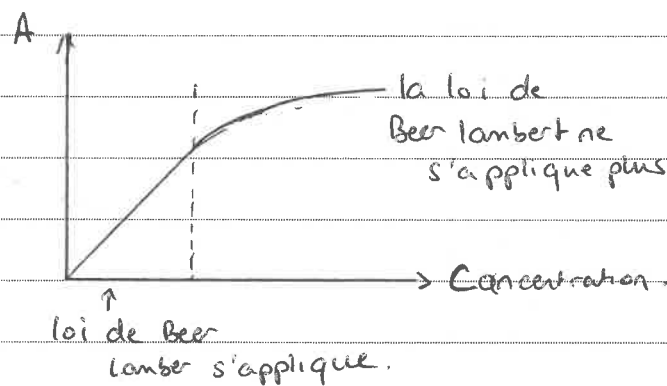 A
la loi de
Beer lambert ne
s'applique plus
Concentration.
loi de Beer
lamber s'applique.